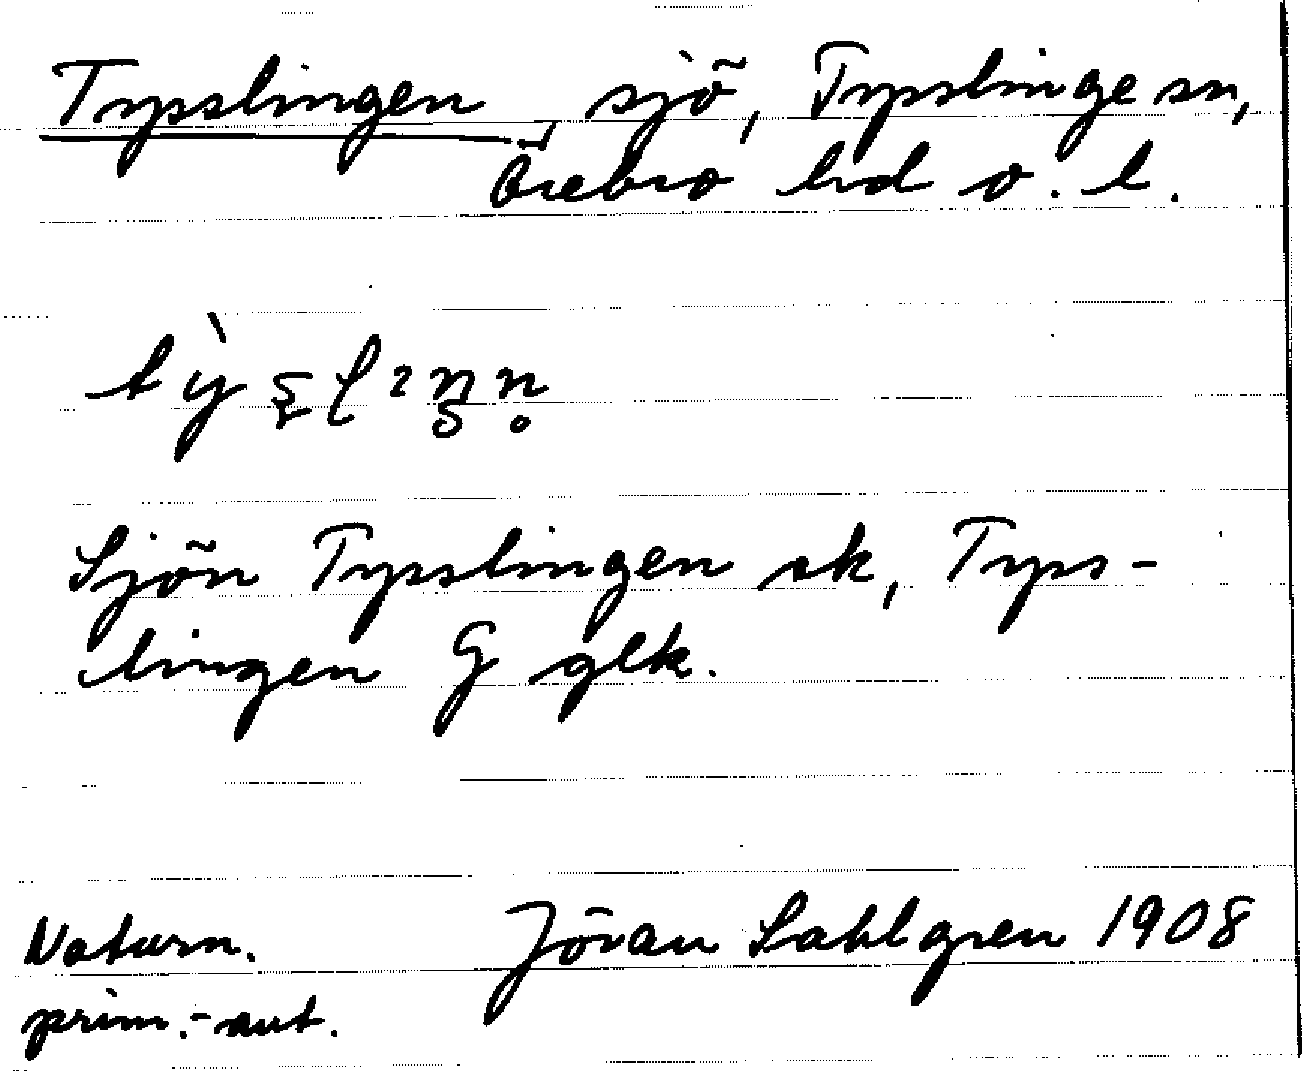 Typslingen, sjö, Tysslinge sn,
Örebro hd o. l.
Sjön Tysslingen sk, Tys-
lingen G glk.
Naturn. Jöran Sahlgren 1908
prim.-aut.